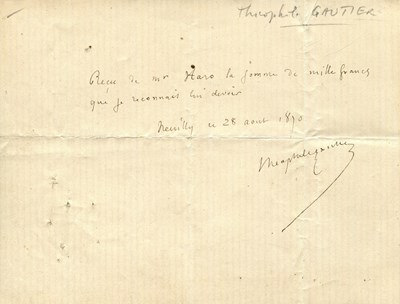 Théophile GAUTIER
Recu de mr Haro la somme de mille francs
que je reconnais lui devoir
Neuilly ce 28 aout 1870
Theophile Gautier